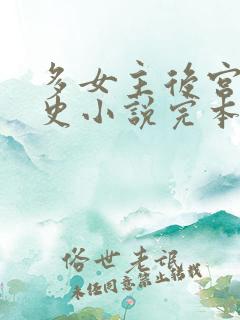 多女主後宮
史小說完本
俗世老泯
未经同意禁止转载